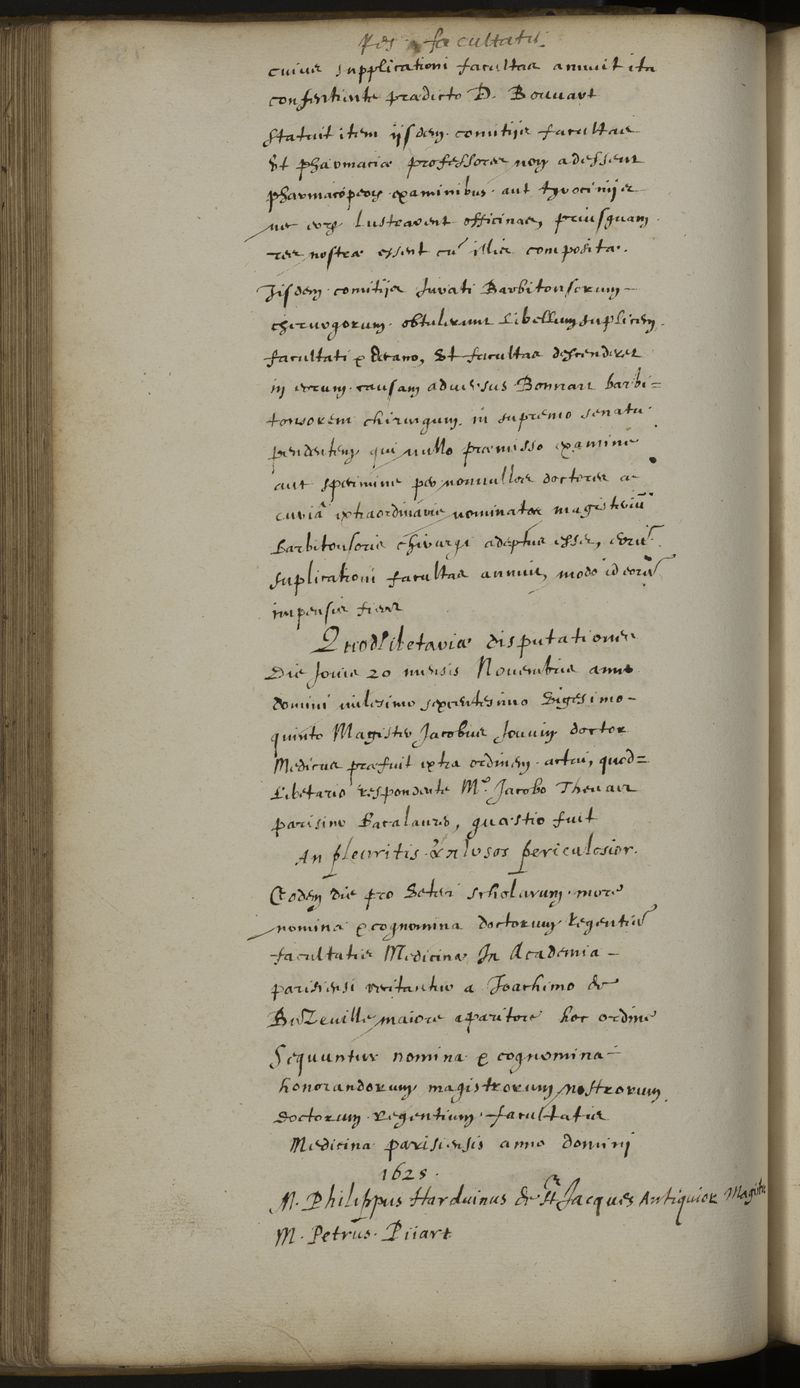 Res facultatis.
cuius supplicationi facultas annuit ita
consentiente praedicto D. Bouvart
Statuit item iisdem comitijs facultas
Vt pharmaciae professores non adessent
pharmacopoeis examinibus aut tyrocinijs
ne eorum lustrarent officinas, priusquam
res nostrae essent cū illis compositae.
Iisdem comitijs Iurati Barbitonsorum
chirurgorum obtulerunt Libellum suplicem
facultati & decano, Vt facultas descenderet
in eorum causam adversus Bonnart barbi=
tonsorem chirurgum in supremo senatu
pendentem qui nullo praemisso examine
aut specimine per nonnullos doctores a
curiā extraordinarie nominatos magisteriū
Barbitonsoris chirurgi adeptus esset, eorū
suplicationi facultas annuit, modo id eorū
impensis fieret
Quodlibetariae disputationes
Die Jovis 20 mensis Novembris anno
domini milesimo sexcentesimo Vigesimo
quinto Magister Jacobus Jouvin doctor
Medicus praefuit extra ordinem actui, quod=
Libetario respondente Mo. Jacobo Thevart
parisino Bacalaureo, quaestio fuit
An pleuritis exalvsos periculosior.
Eodem die pro Veteri scholarum more
nomina & cognomina doctorum Regentiū
facultatis Medicinae In Academia
parisiensi recitantur a Joachimo de
Buzeville maiore aparitore hoc ordine
Sequuntur nomina & cognomina
honorandorum magistrorum nostrorum
doctorum regentium facultatis
Medicina parisiensis anno domini
1625.
M. Philippus Harduinus de St Jacques Antiquior Magister
M. Petrus Piiart